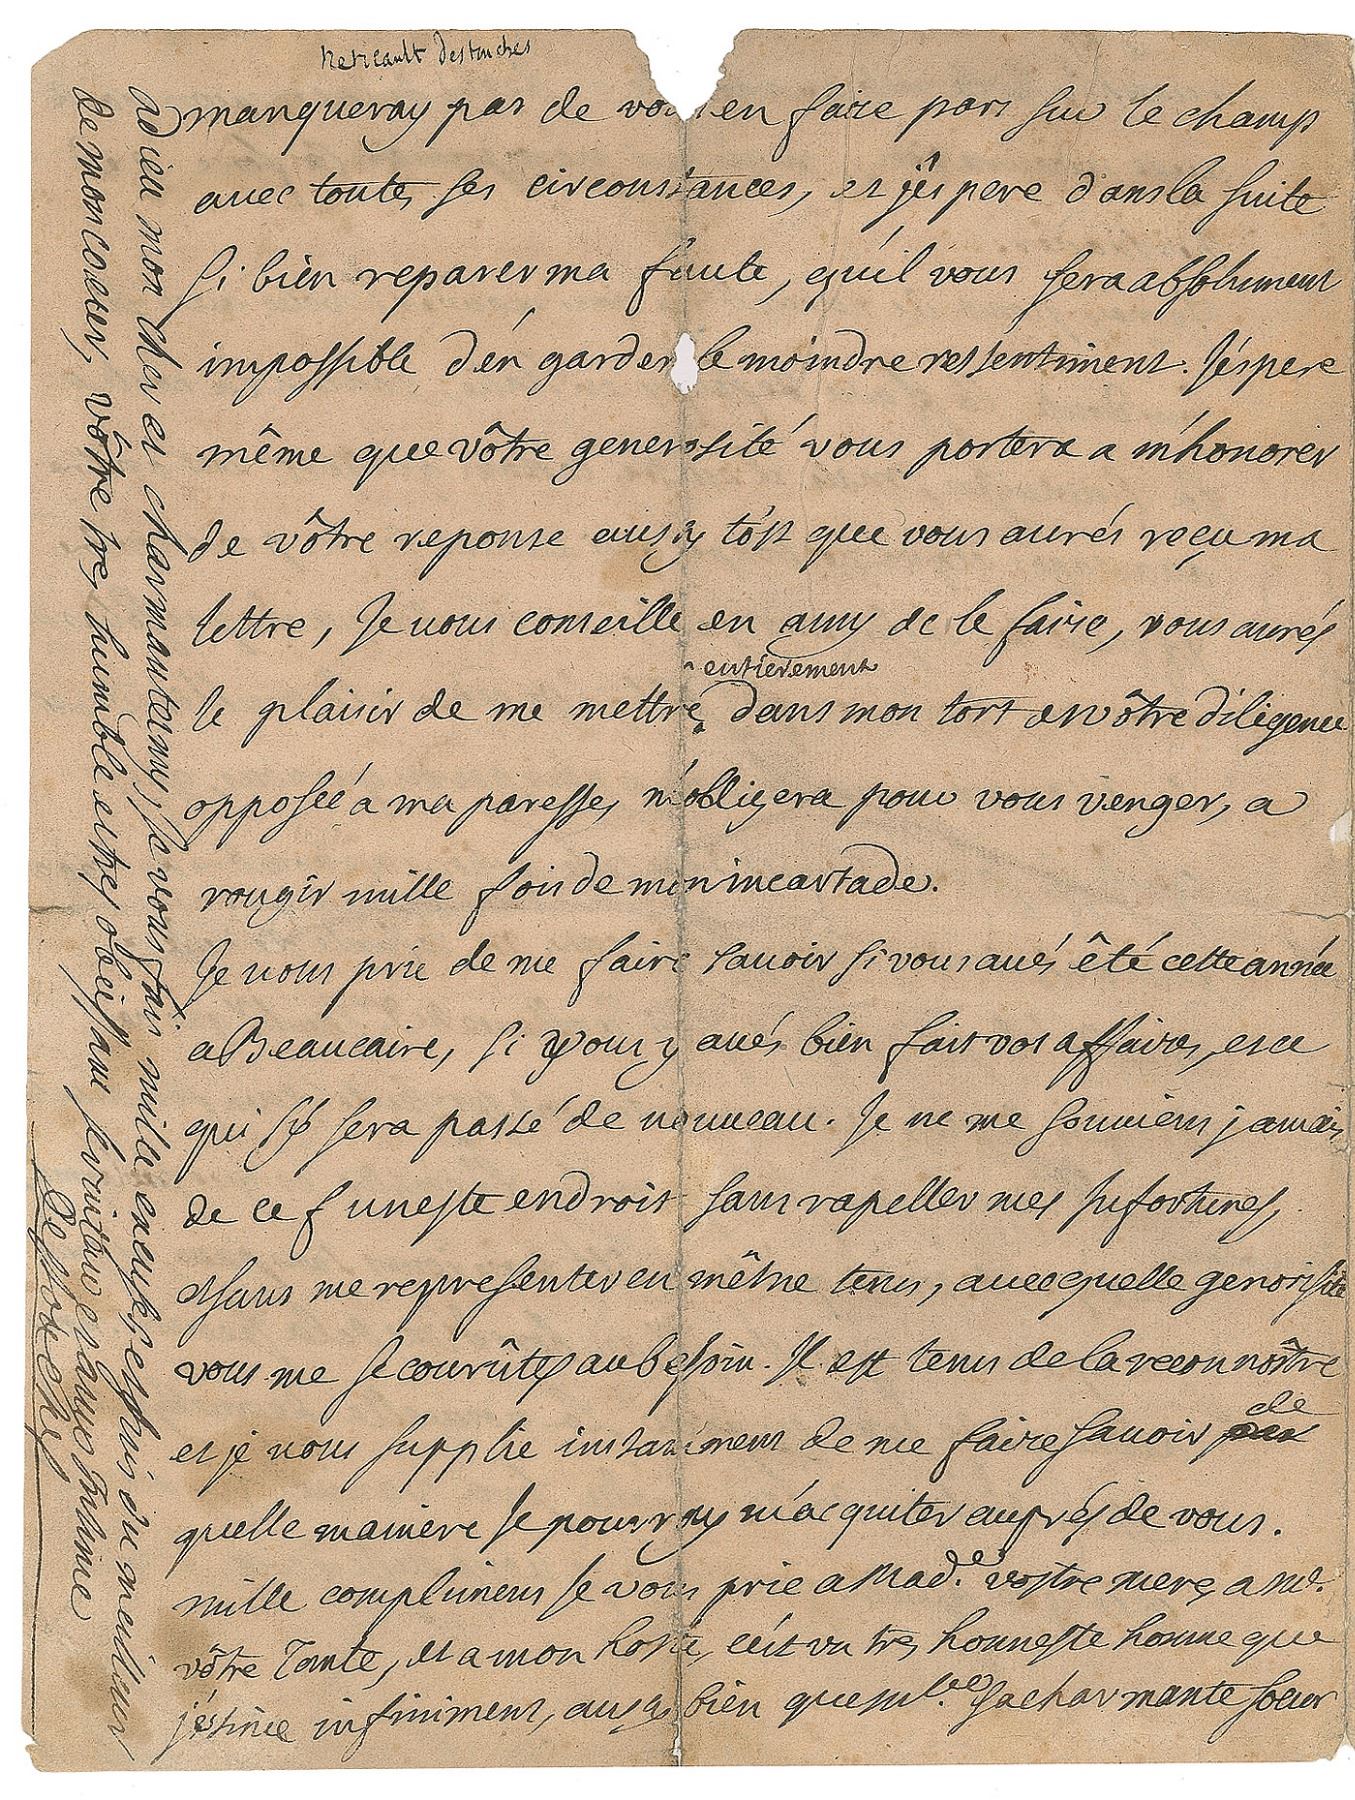 Nericault Destouches
manqueray pas de vous en faire part sur le champ
avec toutes ses circonstances, et j'éspere dans la suite
si bien reparer ma faute, qu'il vous sera absolument
impossible d'én garder le moindre ressentiment. J'éspere
même que vôtre generosité vous portera a m'honorer
de vôtre reponse aussy tôst que vous aurés reçu ma
lettre, Je vous conseille en amy de le faire, vous aurés
entierement
le plaisir de me mettre dans mon tort et vôtre diligence
opposée a ma paresse, m'obligera pour vous venger, a
rougir mille fois de mon incartade.
Je vous prie de me faire savoir si vous avés êté cette année
a Beaucaire, si vous y avés bien fait vos affaires, et ce
qui s'y sera passé de nouveau. Je ne me souviens jamais
de ce funeste endroit sans rapeller mes infortunes,
et sans me representer en même tems, avec quelle generosité
vous me secourûtes au besoin. Il est tems de la reconnoître
de
et je vous supplie instamment de me faire savoir par
quelle maniere Je pourray m'acquiter auprés de vous.
mille complimens Je vous prie a Mad.e vostre mere, a Me.
vôtre Tante, et a mon hoste, c'est un tres honneste homme que
j'éstime infiniment, aussy bien que Mlle. sa charmante soeur
Adieu mon cher et charmant amy, Je vous fais mille excuses, et suis du meilleur
de mon coeur, vôtre tres humble et tres obeissant serviteur et amy intime
Destouches